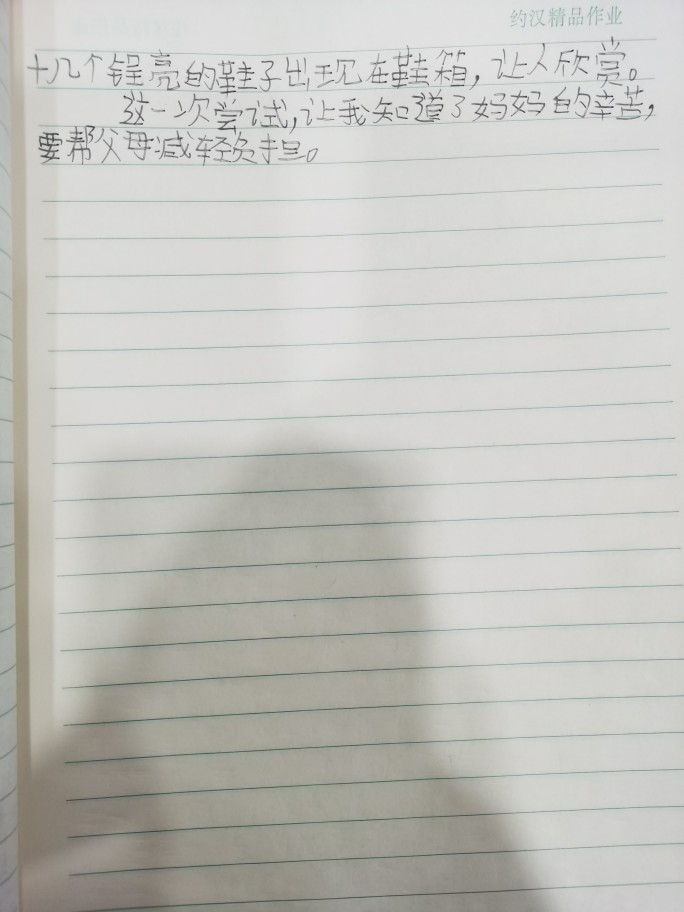 约汉精品作业
十几个锃亮的鞋子出现在鞋箱，让人欣赏。
这一次尝试，让我知道了妈妈的辛苦，
要帮父母减轻负担。